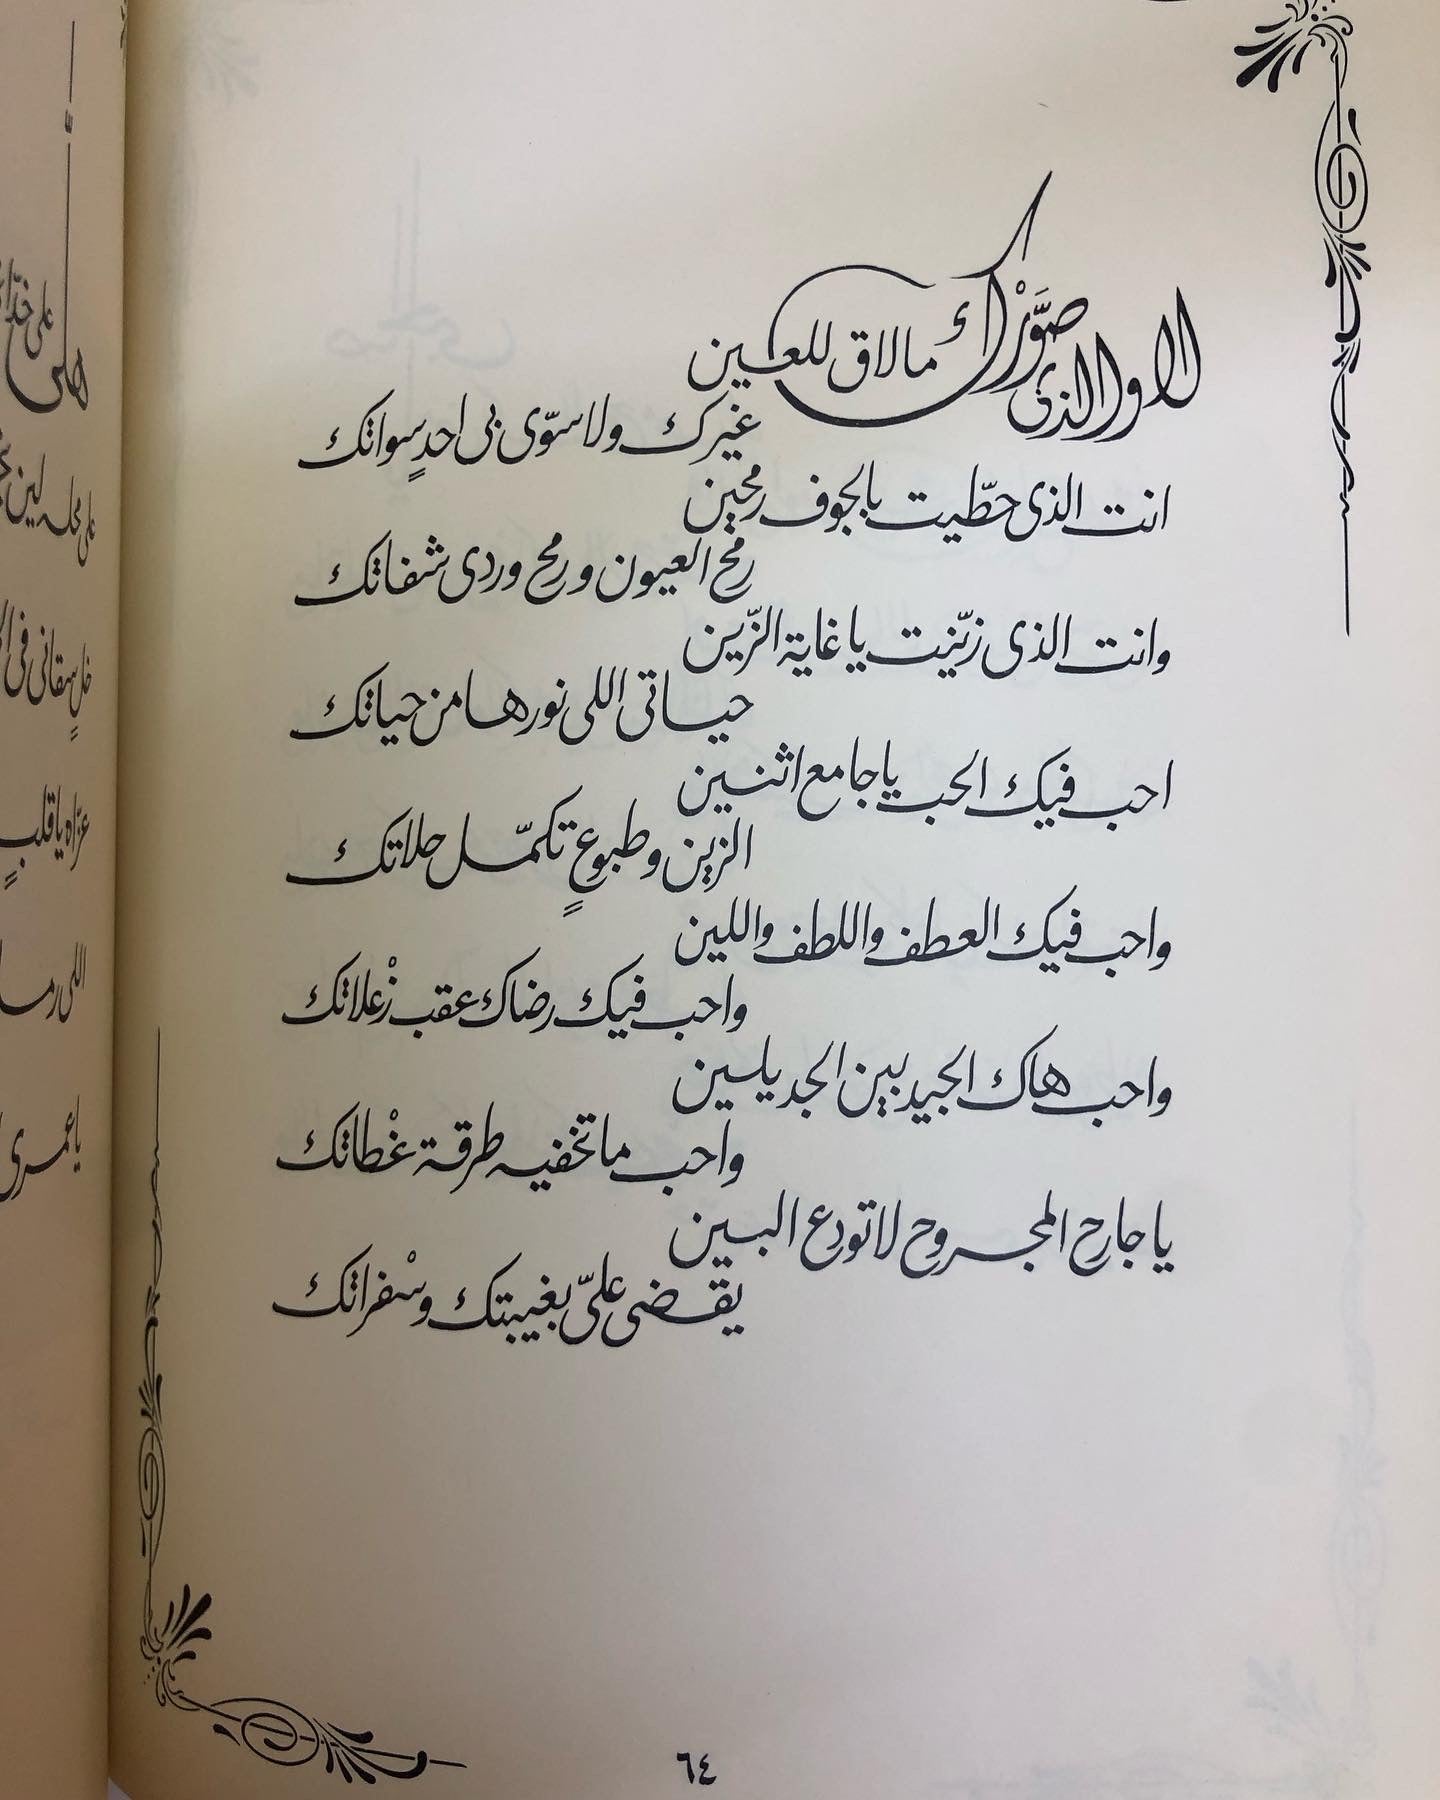 لا والذى صَوَّرْك مالاق للعين
غيرك ولا سوّى بى احدٍ سواتك
انت الذى حطّيت بالجوف رمحين
رمح العيون ورمح وردى شفاتك
وانت الذى زيّنت يا غاية الزّين
حياتى اللى نورها من حياتك
احب فيك الحب يا جامع اثنين
الزين وطبوعٍ تكمّل حلاتك
واحب فيك العطف واللطف واللين
واحب فيك رضاك عقب زْعلاتك
واحب هاك الجيد بين الجديلين
واحب ما تخفيه طرقة غْطاتك
يا جارح المجروح لا تودع البين
يقضى علىّ بغيبتك وسْفراتك
٦٤
على خدّ
على محله لين
خلٍ سقانى فى
عزّاه يا قلبٍ
اللى رما
يا عمرى